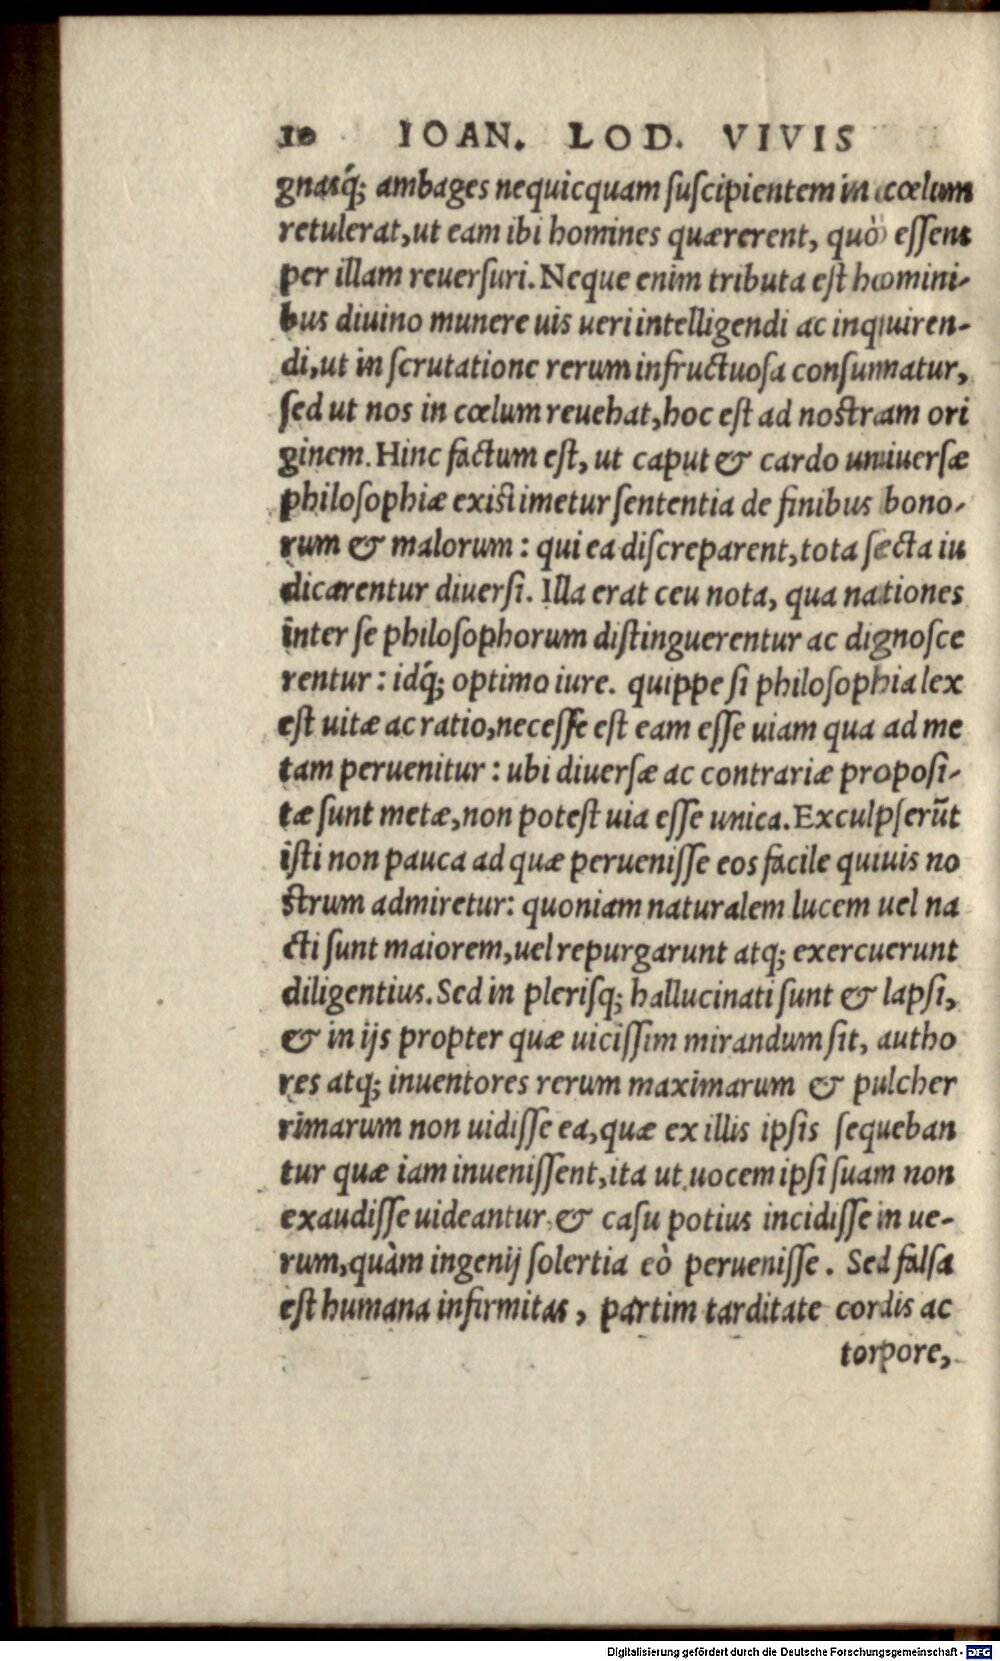 10 IOAN. LOD. VIVIS
gnasq́; ambages nequicquam ſuſcipientem in cœlum
retulerat, ut eam ibi homines quærerent, quò eſſent
per illam reuerſuri. Neque enim tributa eſt homini-
bus diuino munere uis ueri intelligendi ac inquiren-
di, ut in ſcrutatione rerum infructuoſa conſumatur,
ſed ut nos in cœlum reuehat, hoc eſt ad noſtram ori
ginem. Hinc factum eſt, ut caput & cardo uniuerſæ
philoſophiæ exiſtimetur ſententia de finibus bono-
rum & malorum: qui ea diſcreparent, tota ſecta iu
dicarentur diuerſi. Illa erat ceu nota, qua nationes
inter ſe philoſophorum diſtinguerentur ac dignoſce
rentur: idq́; optimo iure. quippe ſi philoſophia lex
eſt uitæ ac ratio, neceſſe eſt eam eſſe uiam qua ad me
tam peruenitur: ubi diuerſæ ac contrariæ propoſi-
tæ ſunt metæ, non poteſt uia eſſe unica. Exculpſerūt
iſti non pauca ad quæ perueniſſe eos facile quiuis no
ſtrum admiretur: quoniam naturalem lucem uel na
cti ſunt maiorem, uel repurgarunt atq; exercuerunt
diligentius. Sed in pleriſq; hallucinati ſunt & lapſi,
& in ijs propter quæ uiciſſim mirandum ſit, autho
res atq; inuentores rerum maximarum & pulcher
rimarum non uidiſſe ea, quæ ex illis ipſis ſequeban
tur quæ iam inueniſſent, ita ut uocem ipſi ſuam non
exaudiſſe uideantur, & caſu potius incidiſſe in ue-
rum, quàm ingenij ſolertia eò perueniſſe. Sed falſa
eſt humana infirmitas, partim tarditate cordis ac
torpore,
Digitalisierung gefördert durch die Deutsche Forschungsgemeinschaft - DFG